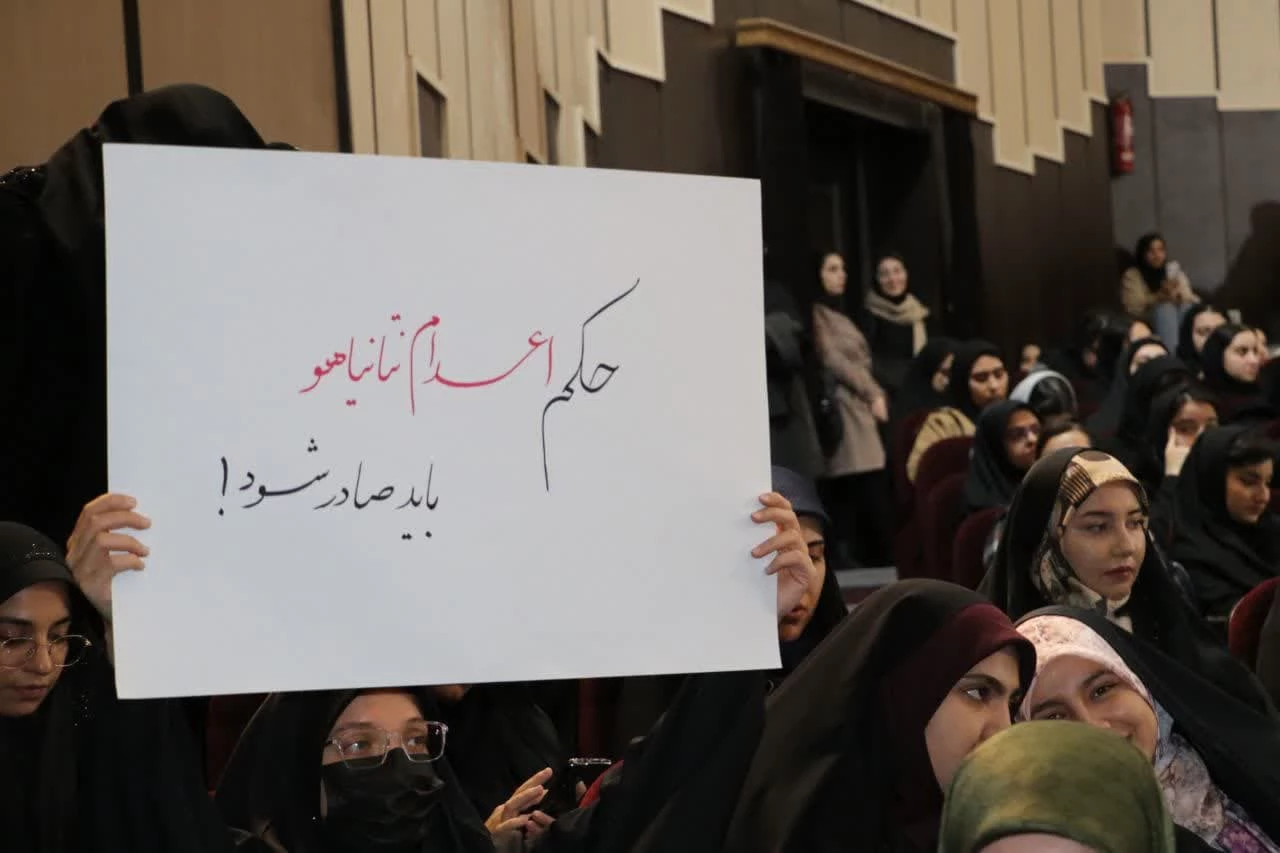 حکم اعدام نتانیاهو
باید صادر شود!